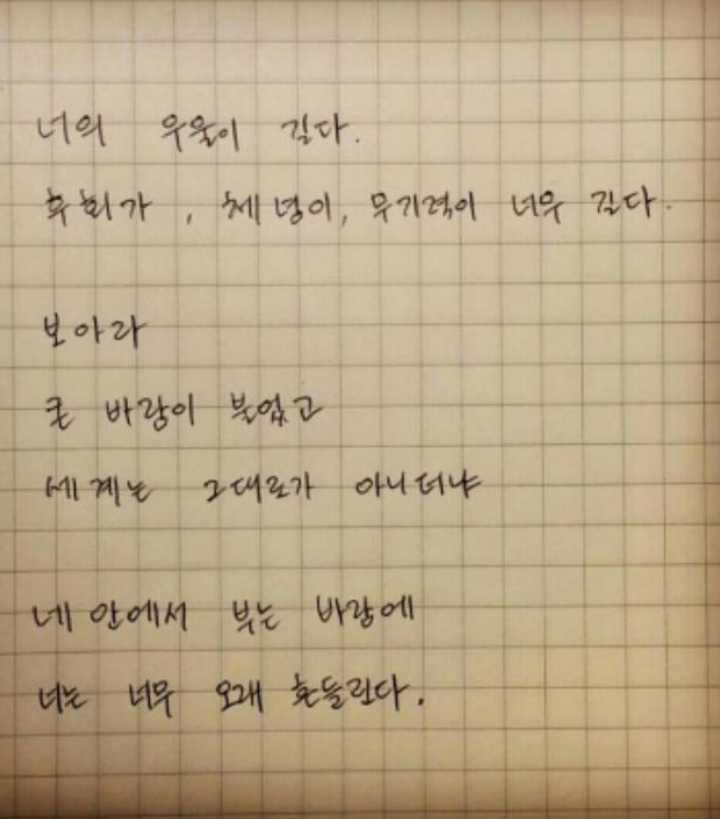 너의 우울이 길다.
후회가, 체념이, 무기력이 너무 길다.
보아라
큰 바람이 불었고
세계는 그대로가 아니더냐
네 안에서 부는 바람에
너는 너무 오래 흔들린다.